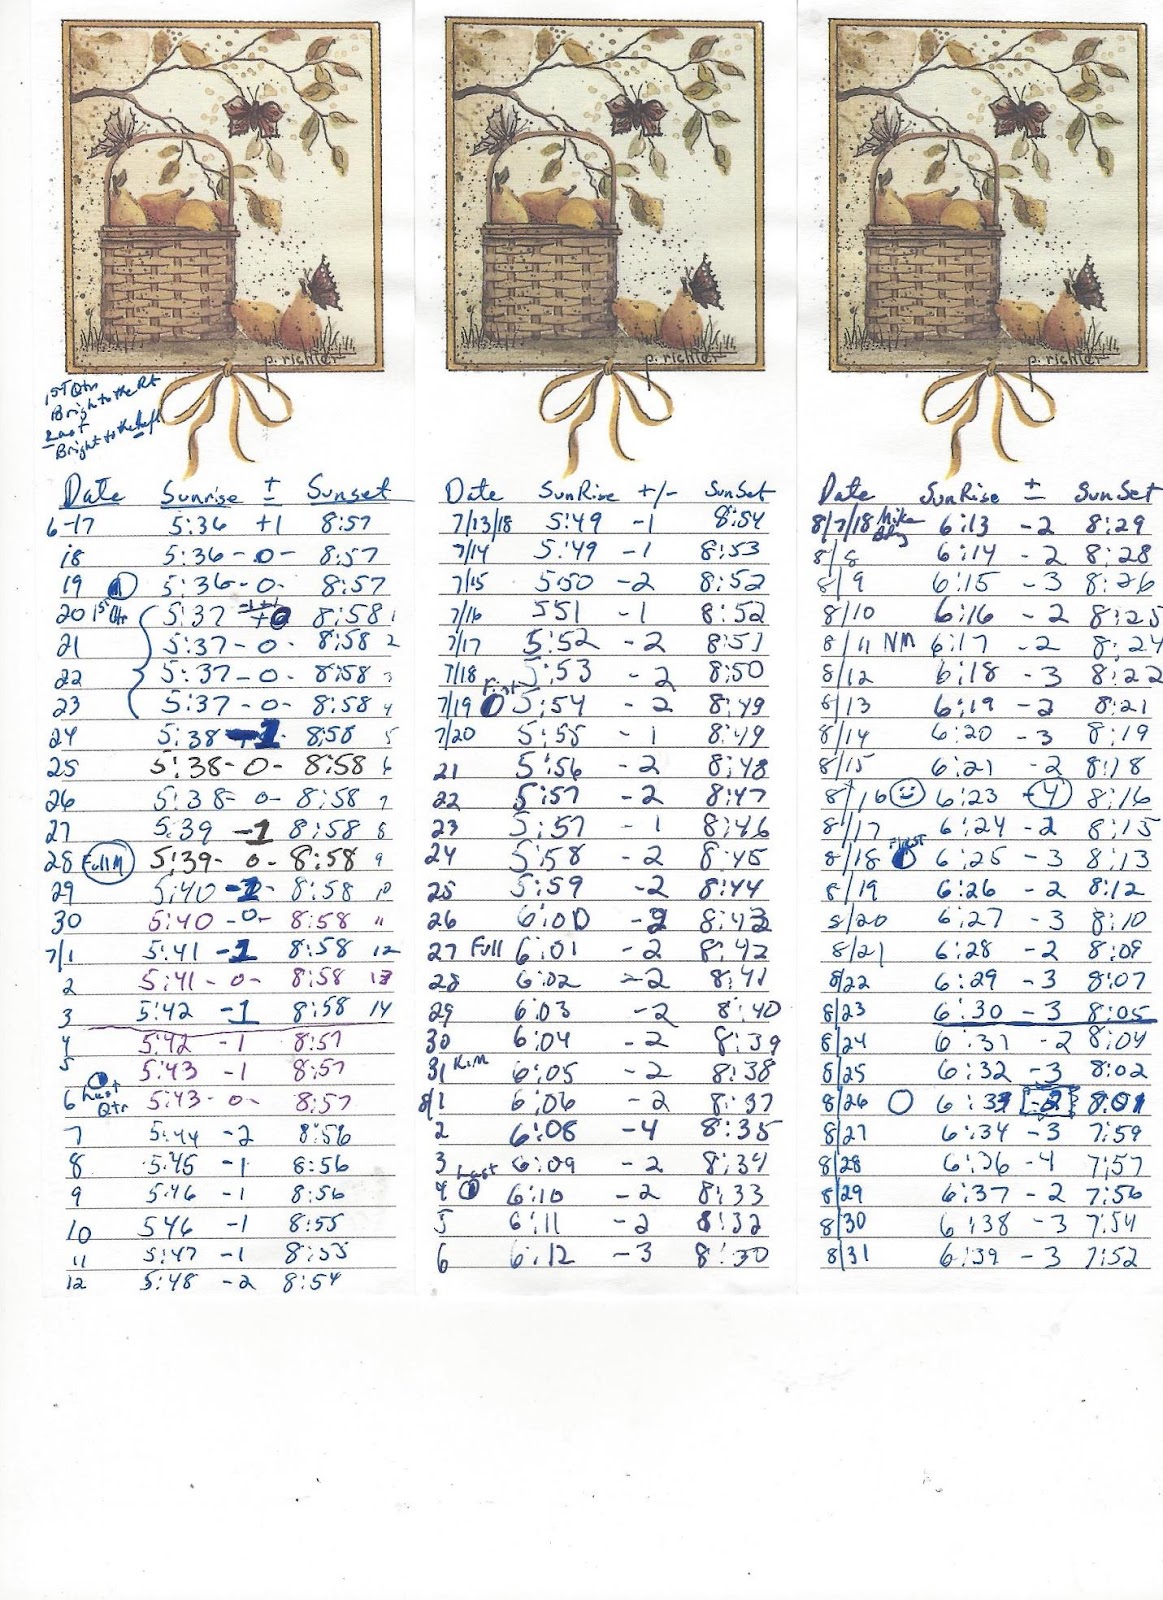 p. richter
1ST Qtr
Bright to the Rt
Last
Bright to the Left
Date Sunrise ± Sunset
6-17 5:36 +1 8:57
18 5:36 -0- 8:57
19 5:36 -0- 8:57
20 1st Qtr 5:37 8:58 1
21 5:37 -0- 8:58 2
22 5:37 -0- 8:58 3
23 5:37 -0- 8:58 4
24 5:38 -1 8:58 5
25 5:38 -0- 8:58 6
26 5:38 -0- 8:58 7
27 5:39 -1 8:58 8
28 Full M 5:39 -0- 8:58 9
29 5:40 -1 8:58 10
30 5:40 -0- 8:58 11
7/1 5:41 -1 8:58 12
2 5:41 -0- 8:58 13
3 5:42 -1 8:58 14
4 5:42 -1 8:57
5 5:43 -1 8:57
6 Last Qtr 5:43 -0- 8:57
7 5:44 -2 8:56
8 5:45 -1 8:56
9 5:46 -1 8:56
10 546 -1 8:55
11 5:47 -1 8:55
12 5:48 -2 8:54
p. richter
Date SunRise +/- SunSet
7/13/18 5:49 -1 8:54
7/14 5:49 -1 8:53
7/15 5:50 -2 8:52
7/16 551 -1 8:52
7/17 5:52 -2 8:51
7/18 5:53 -2 8:50
7/19 First 5:54 -2 8:49
7/20 5:55 -1 8:49
21 5:56 -2 8:48
22 5:57 -2 8:47
23 5:57 -1 8:46
24 5:58 -2 8:45
25 5:59 -2 8:44
26 6:00 -2 8:43
27 Full 6:01 -2 8:42
28 6:02 -2 8:41
29 6:03 -2 8:40
30 6:04 -2 8:39
31 Kim 6:05 -2 8:38
8/1 6:06 -2 8:37
2 6:08 -4 8:35
3 6:09 -2 8:34
4 Last 6:10 -2 8:33
5 6:11 -2 8:32
6 6:12 -3 8:30
p. richter
Date SunRise ± SunSet
8/7/18 Mike Bdy 6:13 -2 8:29
8/8 6:14 -2 8:28
8/9 6:15 -3 8:26
8/10 6:16 -2 8:25
8/11 NM 6:17 -2 8:24
8/12 6:18 -3 8:22
8/13 6:19 -2 8:21
8/14 6:20 -3 8:19
8/15 6:21 -2 8:18
8/16 6:23 -4 8:16
8/17 6:24 -2 8:15
8/18 First 6:25 -3 8:13
8/19 6:26 -2 8:12
8/20 6:27 -3 8:10
8/21 6:28 -2 8:09
8/22 6:29 -3 8:07
8/23 6:30 -3 8:05
8/24 6:31 -2 8:04
8/25 6:32 -3 8:02
8/26 6:33 -2 8:01
8/27 6:34 -3 7:59
8/28 6:36 -4 7:57
8/29 6:37 -2 7:56
8/30 6:38 -3 7:54
8/31 6:39 -3 7:52